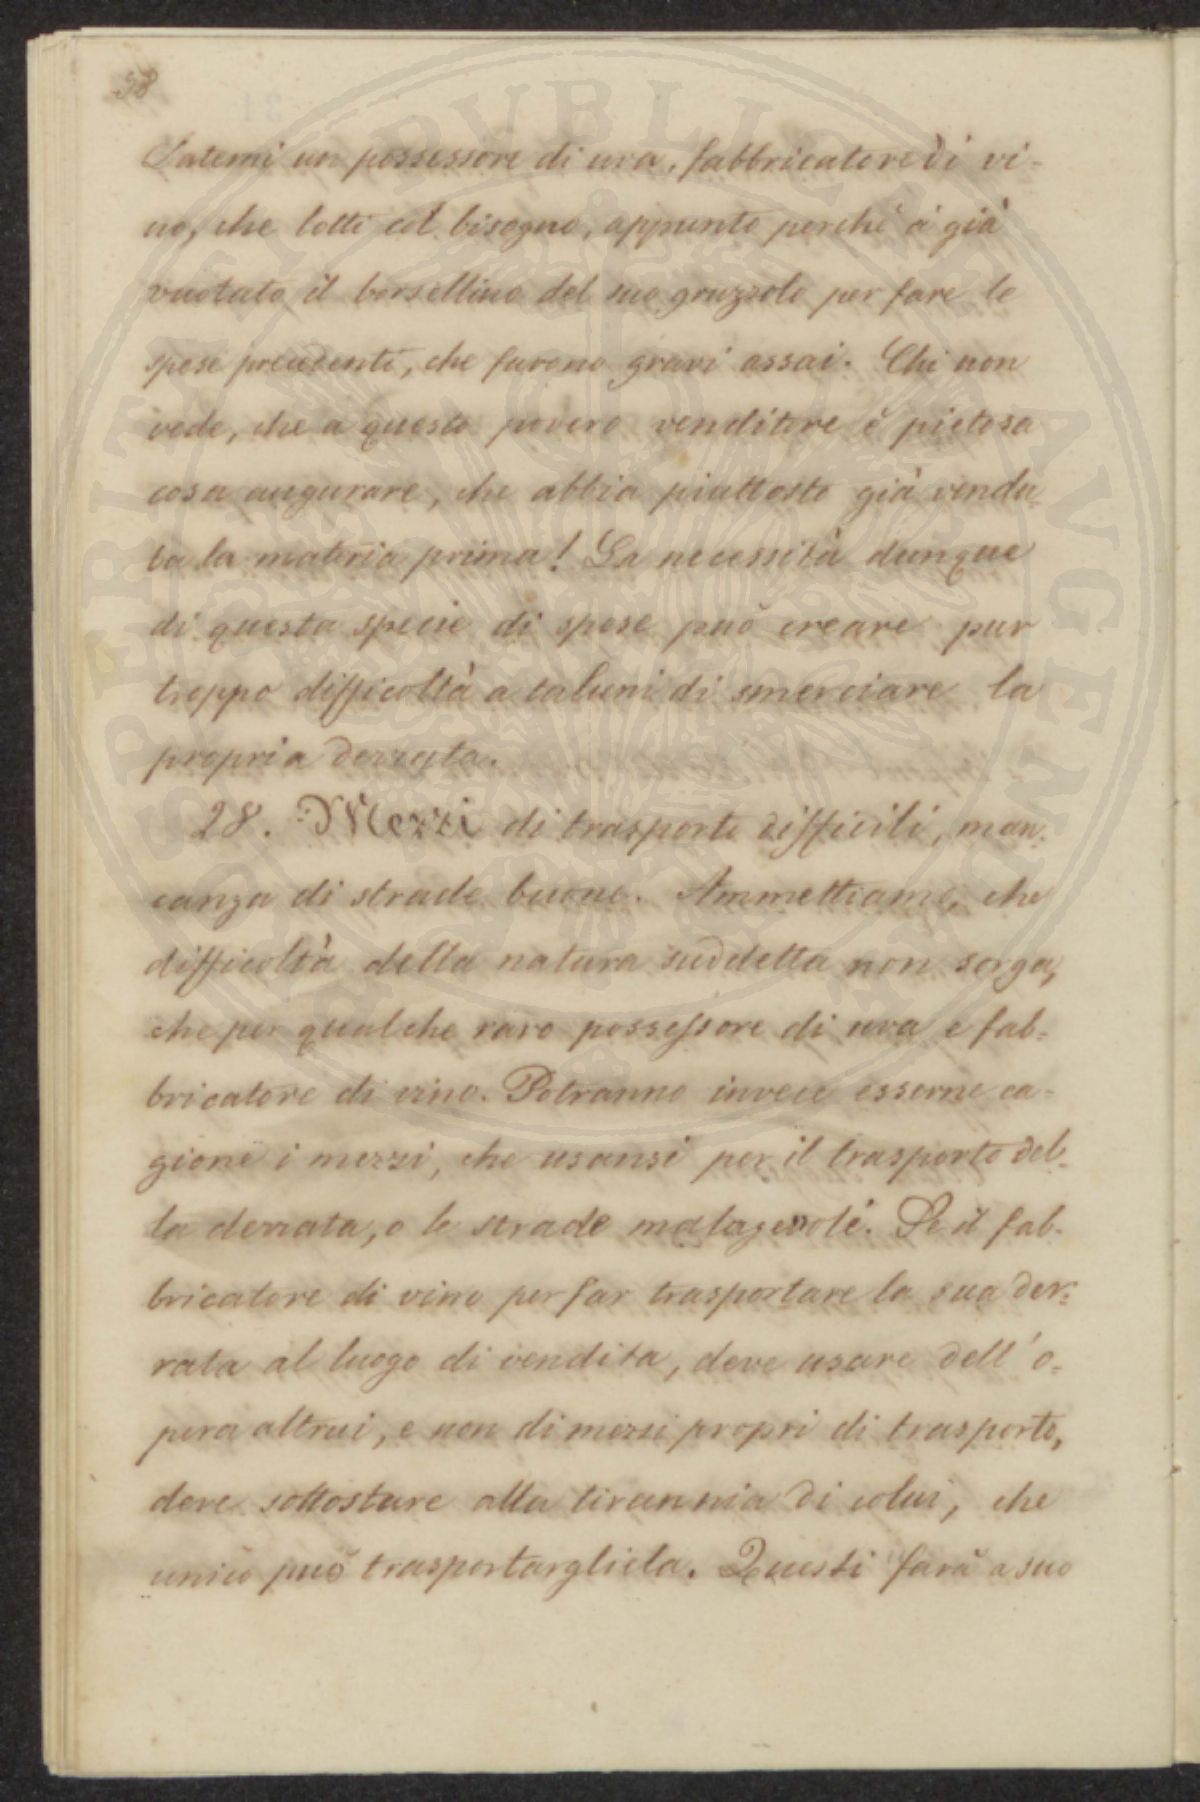 58
Datemi un possessore di uva, fabbricatore di vi-
no, che lotti col bisogno, appunto perchè à già
vuotato il borsellino del suo gruzzolo per fare le
spese precedenti, che furono gravi assai. Chi non
vede, che a questo povero venditore è pietosa
cosa augurare, che abbia piuttosto già vendu-
ta la materia prima! La necessità dunque
di questa specie di spese può creare pur
troppo difficoltà a taluni di smerciare la
propria derrata.
28. Mezzi di trasporto difficili, man-
canza di strade buone. Ammettiamo, che
difficoltà della natura suddetta non sorga,
che per qualche raro possessore di uva e fab-
bricatore di vino. Potranno invece esserne ca-
gione i mezzi, che usansi per il trasporto del-
la derrata, o le strade malagevoli. Se il fab-
bricatore di vino per far trasportare la sua der-
rata al luogo di vendita, deve usare dell'o-
pera altrui, e non di mezzi propri di trasporto,
deve sottostare alla tirannia di colui, che
unico può trasportargliela. Questi farà a suo